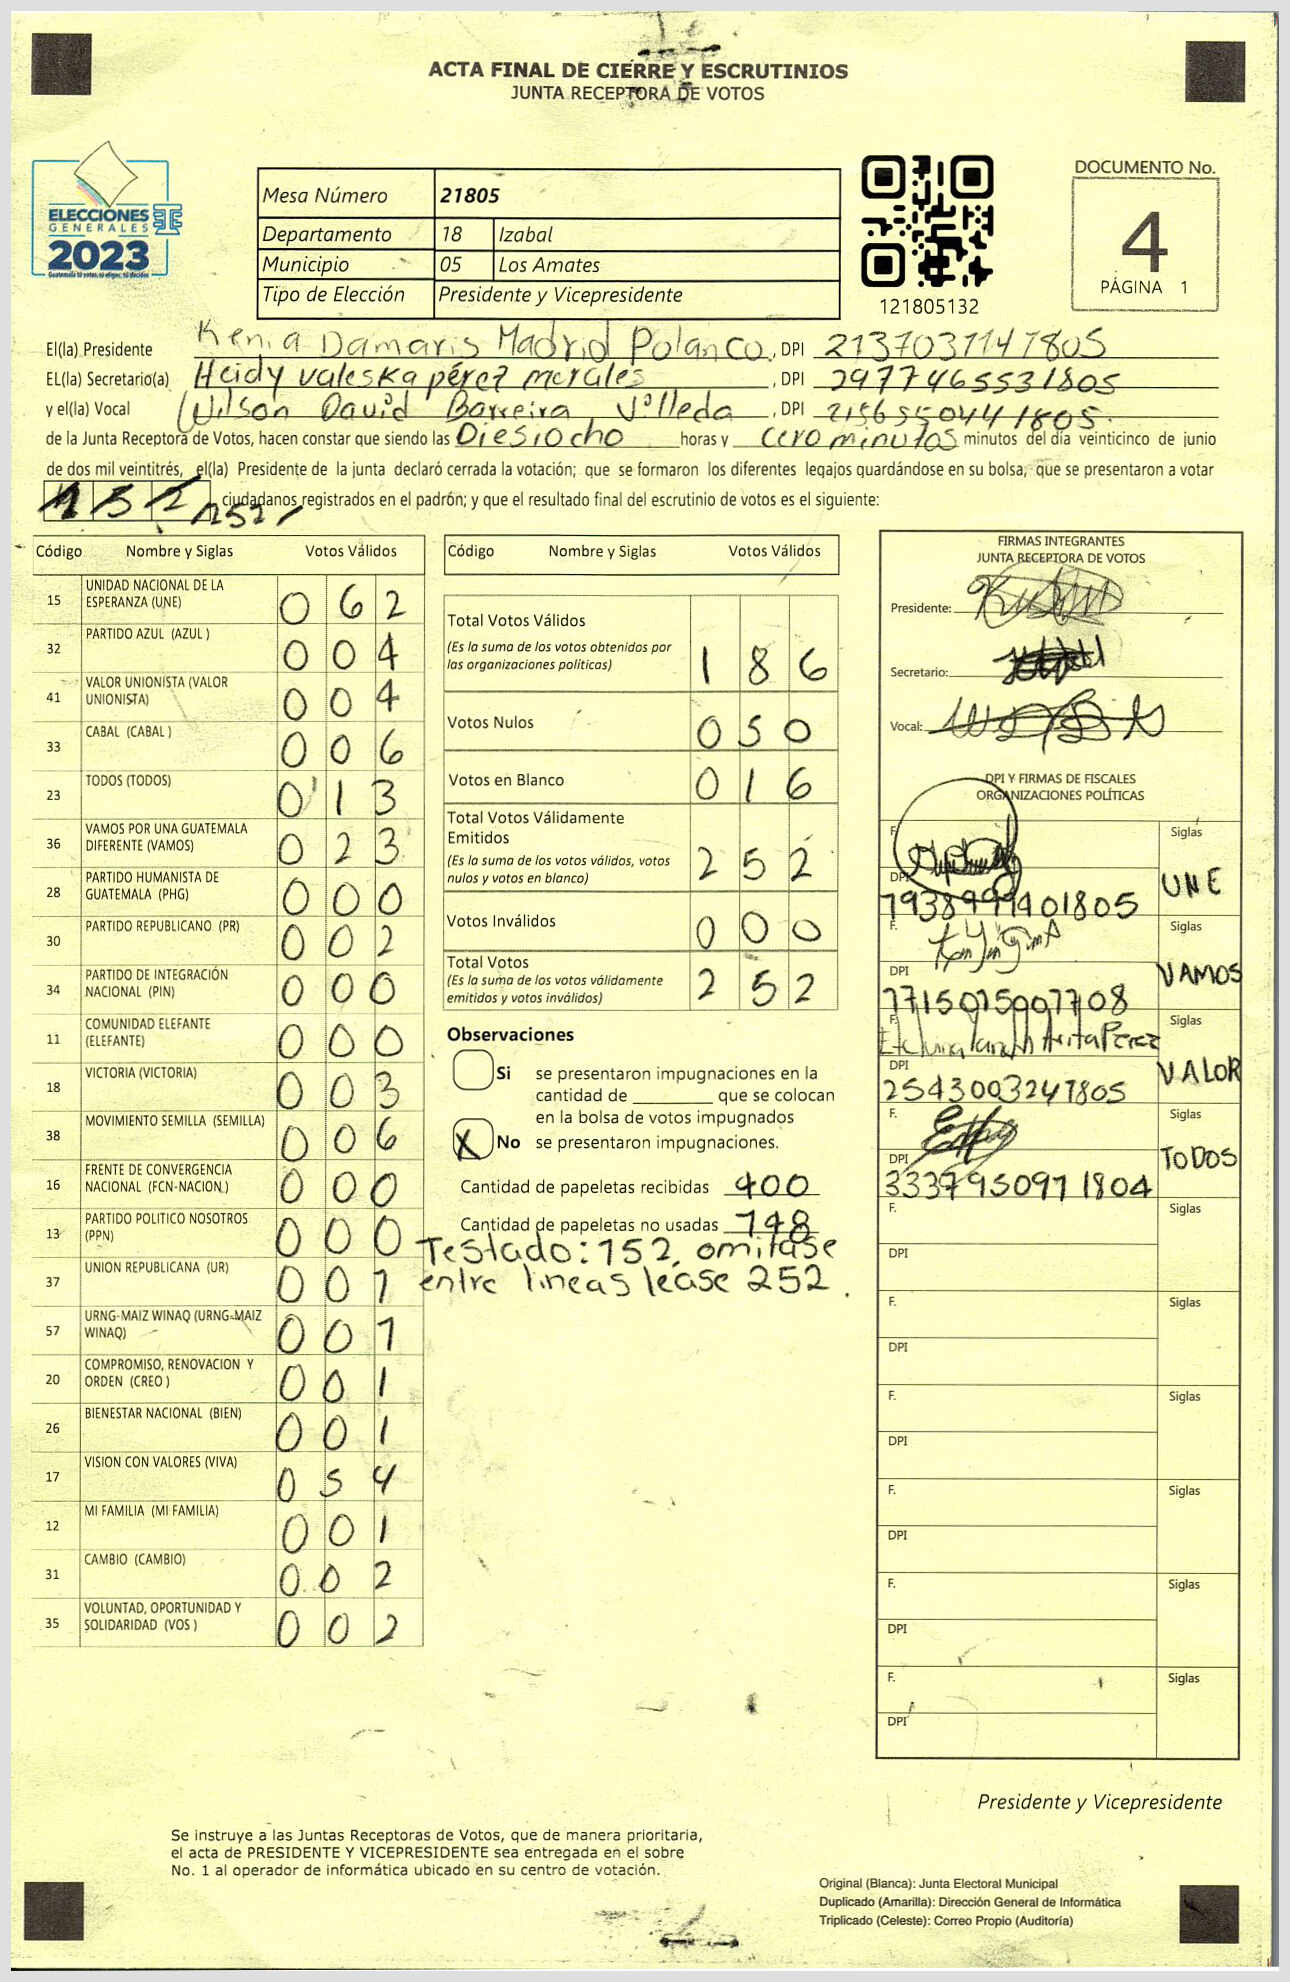 ACTA FINAL DE CIERRE Y ESCRUTINIOS
JUNTA RECEPTORA DE VOTOS
ELECCIONES
GENERALES
2023
Mesa Número 21805
Departamento 18 Izabal
Municipio 05 Los Amates
Tipo de Elección Presidente y Vicepresidente
121805132
DOCUMENTO No.
4
PÁGINA 1
El(la) Presidente Kenia Damaris Madrid Polanco, DPI 2137031141805
EL(la) Secretario(a) Heidy valeska pérez morales, DPI 2977465531805
y el(la) Vocal Wilson David Barreira Villeda, DPI 2156550441805.
de la Junta Receptora de Votos, hacen constar que siendo las Diesiocho horas y cero minutos minutos del día veinticinco de junio
de dos mil veintitrés, el(la) Presidente de la junta declaró cerrada la votación; que se formaron los diferentes legajos quardándose en su bolsa, que se presentaron a votar
152 252 ciudadanos registrados en el padrón; y que el resultado final del escrutinio de votos es el siguiente:
Código Nombre y Siglas Votos Válidos
15 UNIDAD NACIONAL DE LA ESPERANZA (UNE) 0 6 2
32 PARTIDO AZUL (AZUL ) 0 0 4
41 VALOR UNIONISTA (VALOR UNIONISTA) 0 0 4
33 CABAL (CABAL ) 0 0 6
23 TODOS (TODOS) 0 1 3
36 VAMOS POR UNA GUATEMALA DIFERENTE (VAMOS) 0 2 3
28 PARTIDO HUMANISTA DE GUATEMALA (PHG) 0 0 0
30 PARTIDO REPUBLICANO (PR) 0 0 2
34 PARTIDO DE INTEGRACIÓN NACIONAL (PIN) 0 0 0
11 COMUNIDAD ELEFANTE (ELEFANTE) 0 0 0
18 VICTORIA (VICTORIA) 0 0 3
38 MOVIMIENTO SEMILLA (SEMILLA) 0 0 6
16 FRENTE DE CONVERGENCIA NACIONAL (FCN-NACION ) 0 0 0
13 PARTIDO POLITICO NOSOTROS (PPN) 0 0 0
37 UNION REPUBLICANA (UR) 0 0 1
57 URNG-MAIZ WINAQ (URNG-MAIZ WINAQ) 0 0 1
20 COMPROMISO, RENOVACION Y ORDEN (CREO ) 0 0 1
26 BIENESTAR NACIONAL (BIEN) 0 0 1
17 VISION CON VALORES (VIVA) 0 5 4
12 MI FAMILIA (MI FAMILIA) 0 0 1
31 CAMBIO (CAMBIO) 0 0 2
35 VOLUNTAD, OPORTUNIDAD Y SOLIDARIDAD (VOS ) 0 0 2
Código Nombre y Siglas Votos Válidos
Total Votos Válidos 1 8 6
(Es la suma de los votos obtenidos por
las organizaciones políticas)
Votos Nulos 0 5 0
Votos en Blanco 0 1 6
Total Votos Válidamente
Emitidos 2 5 2
(Es la suma de los votos válidos, votos
nulos y votos en blanco)
Votos Inválidos 0 0 0
Total Votos 2 5 2
(Es la suma de los votos válidamente
emitidos y votos inválidos)
Observaciones
Si se presentaron impugnaciones en la
cantidad de ________ que se colocan
en la bolsa de votos impugnados
X No se presentaron impugnaciones.
Cantidad de papeletas recibidas 400
Cantidad de papeletas no usadas 148
Testado: 152, omitase
entre lineas lease 252.
FIRMAS INTEGRANTES
JUNTA RECEPTORA DE VOTOS
Presidente:
Secretario:
Vocal:
DPI Y FIRMAS DE FISCALES
ORGANIZACIONES POLÍTICAS
F. Siglas
DPI UNE
F. Siglas
DPI VAMOS
1715015001108
F. Siglas
DPI VALOR
2543003241805
F. Siglas
DPI TODOS
3337950971804
F. Siglas
DPI
F. Siglas
DPI
F. Siglas
DPI
F. Siglas
DPI
F. Siglas
DPI
F. Siglas
DPI
Presidente y Vicepresidente
Se instruye a las Juntas Receptoras de Votos, que de manera prioritaria,
el acta de PRESIDENTE Y VICEPRESIDENTE sea entregada en el sobre
No. 1 al operador de informática ubicado en su centro de votación.
Original (Blanca): Junta Electoral Municipal
Duplicado (Amarilla): Dirección General de Informática
Triplicado (Celeste): Correo Propio (Auditoría)